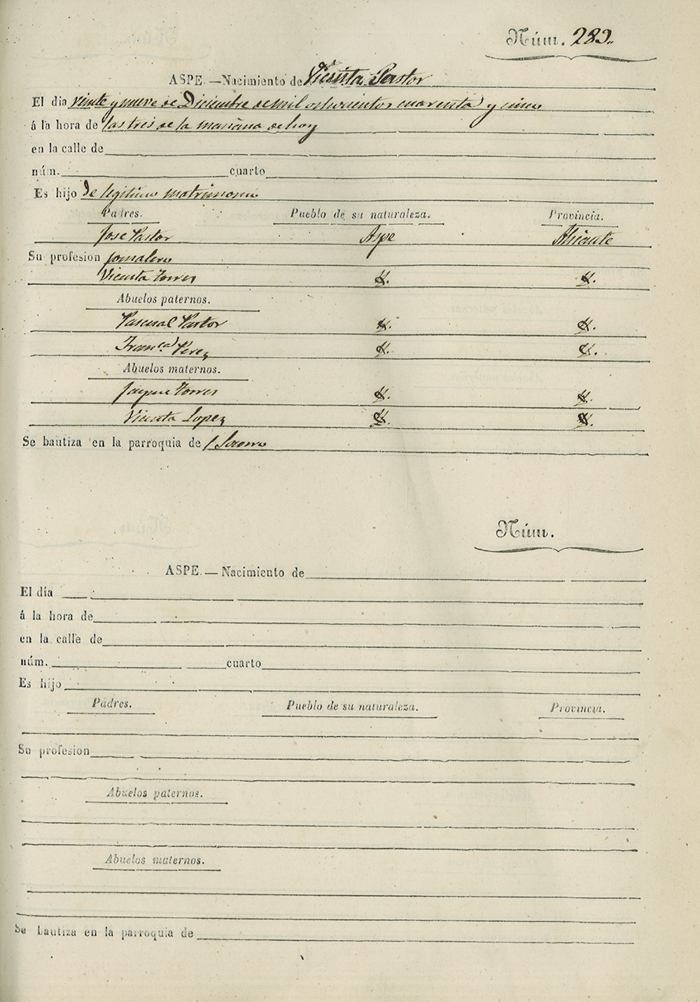 Núm. 282.
ASPE.—Nacimiento de Vicenta Pastor
El dia veinte y nueve de Diciembre de mil ochocientos cuarenta y cinco
á la hora de las tres de la mañana de hoy
en la calle de
núm. cuarto
Es hijo de legitimo matrimonio
Padres. Pueblo de su naturaleza. Provincia.
Jose Pastor Aspe Alicante
Su profesion jornalero
Vicenta Torres
Abuelos paternos.
Pascual Pastor
Fran.ca Perez
Abuelos maternos.
Jayme Torres
Vicenta Lopez
Se bautiza en la parroquia de
Núm.
ASPE.—Nacimiento de
El día
á la hora de
en la calle de
núm. cuarto
Es hijo
Padres. Pueblo de su naturaleza. Provincia.
Su profesion
Abuelos paternos.
Abuelos maternos.
Se bautiza en la parroquia de